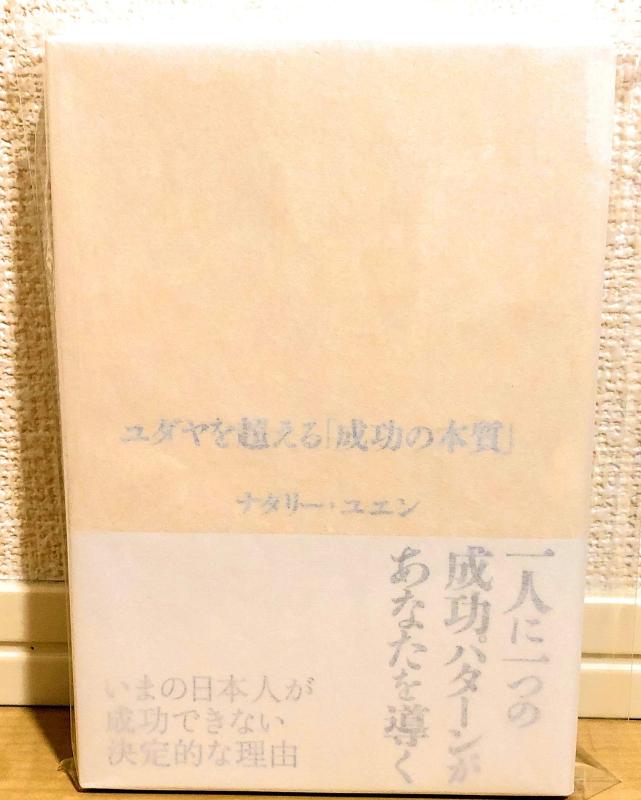 ユダヤを超える「成功の本質」
ナタリー・ユエン
一人に一つの
成功パターンが
あなたを導く
いまの日本人が
成功できない
決定的な理由